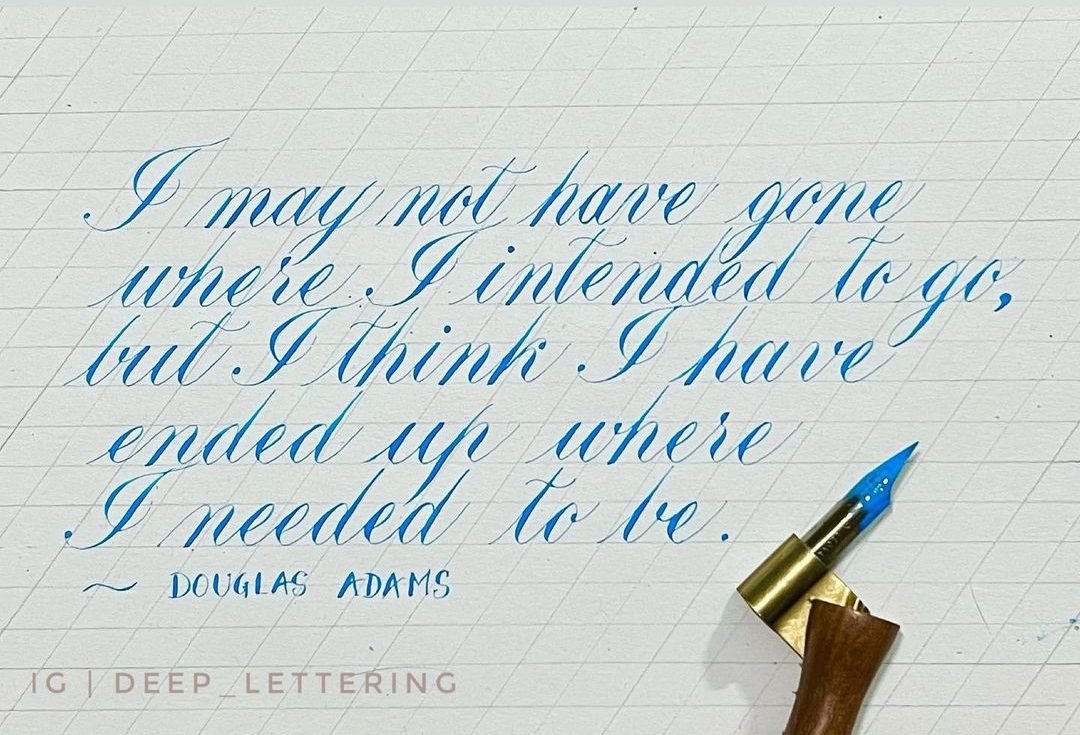 I may not have gone
where I intended to go,
but I think I have
ended up where
I needed to be.
~ DOUGLAS ADAMS
IG | DEEP_LETTERING